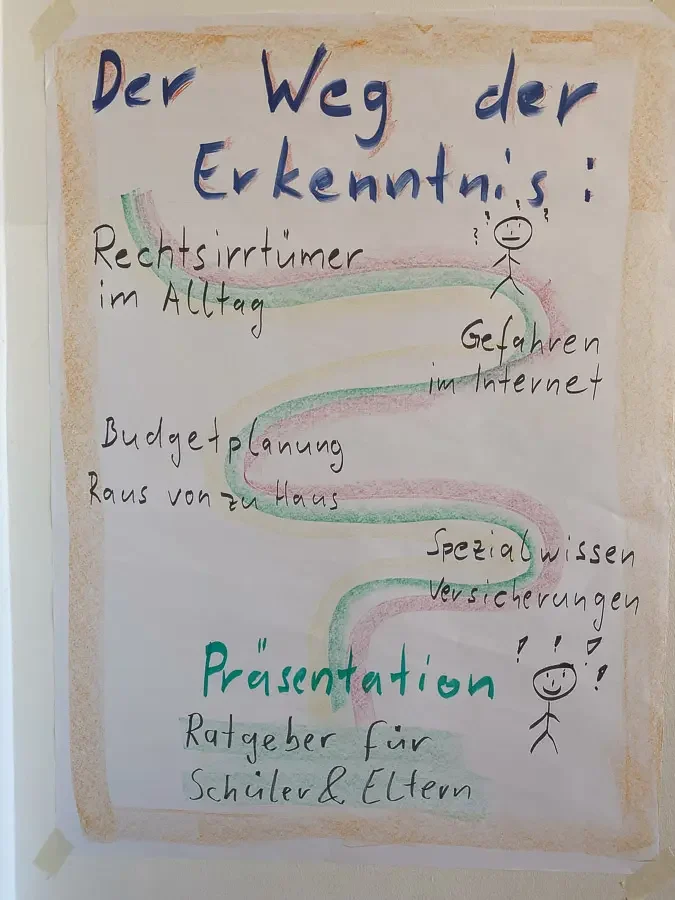 Der Weg der
Erkenntnis:
? ? ?
Rechtsirrtümer
im Alltag
Gefahren
im Internet
Budgetplanung
Raus von zu Haus
Spezialwissen
Versicherungen
! ! ! !
Präsentation
Ratgeber für
Schüler & Eltern